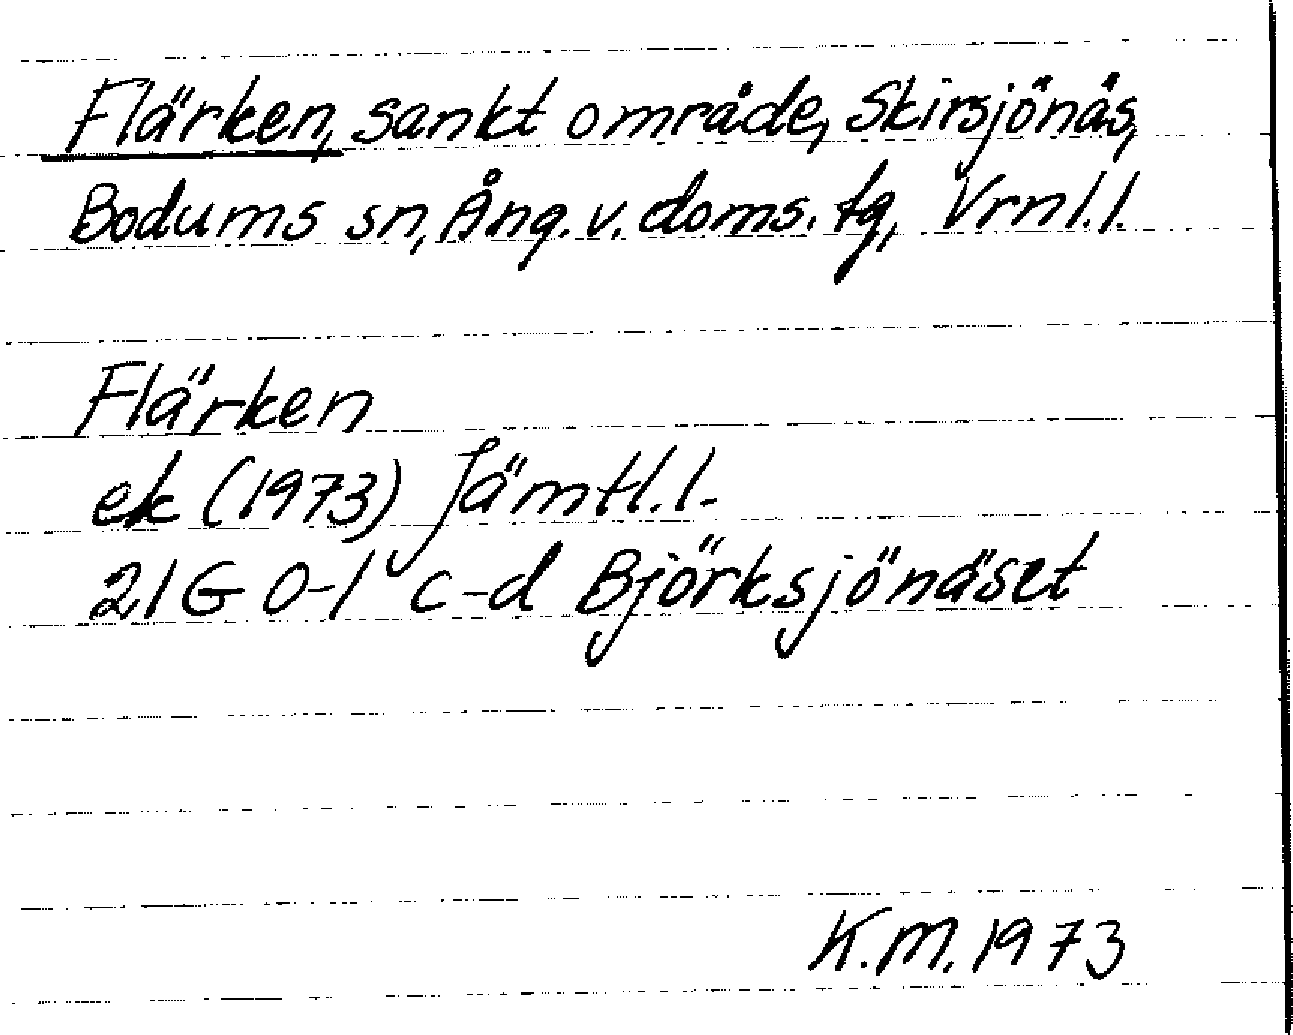 Flärken, sankt område, Skirsjönäs,
Bodums sn, Ång. v. doms. tg, Vrnl.l.
Flärken
ek (1973) Jämtl.l.
21G 0-1 c-d Björksjönäset
K.M. 1973